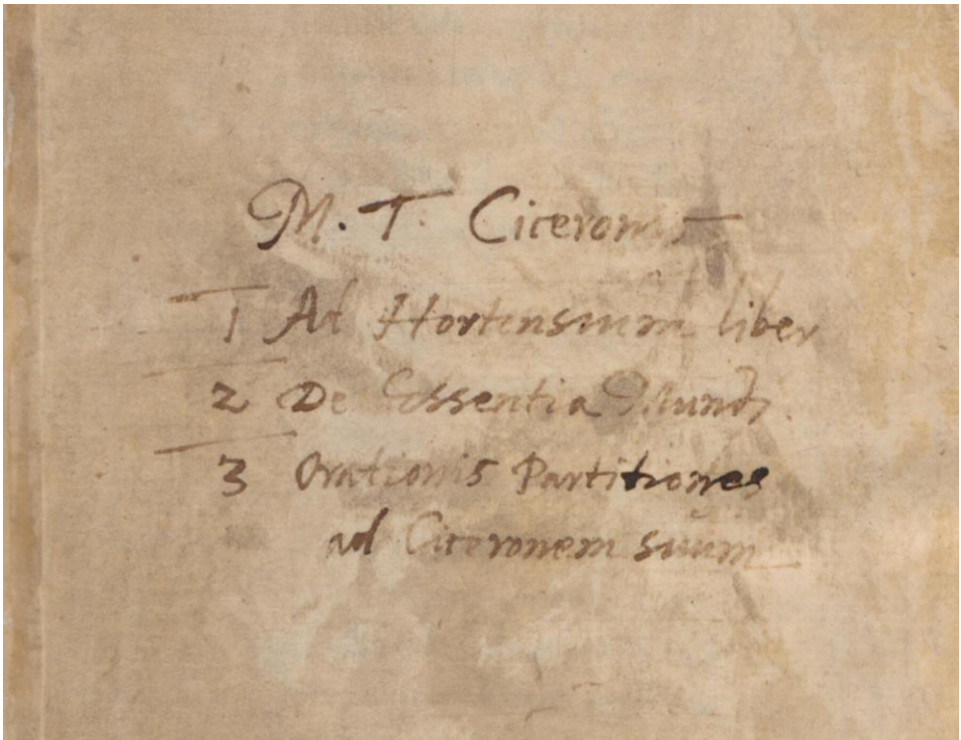 M. T. Ciceronis
1 Ad Hortensium liber
2 De Essentia Mundi.
3 Orationis Partitiones
ad Ciceronem suum